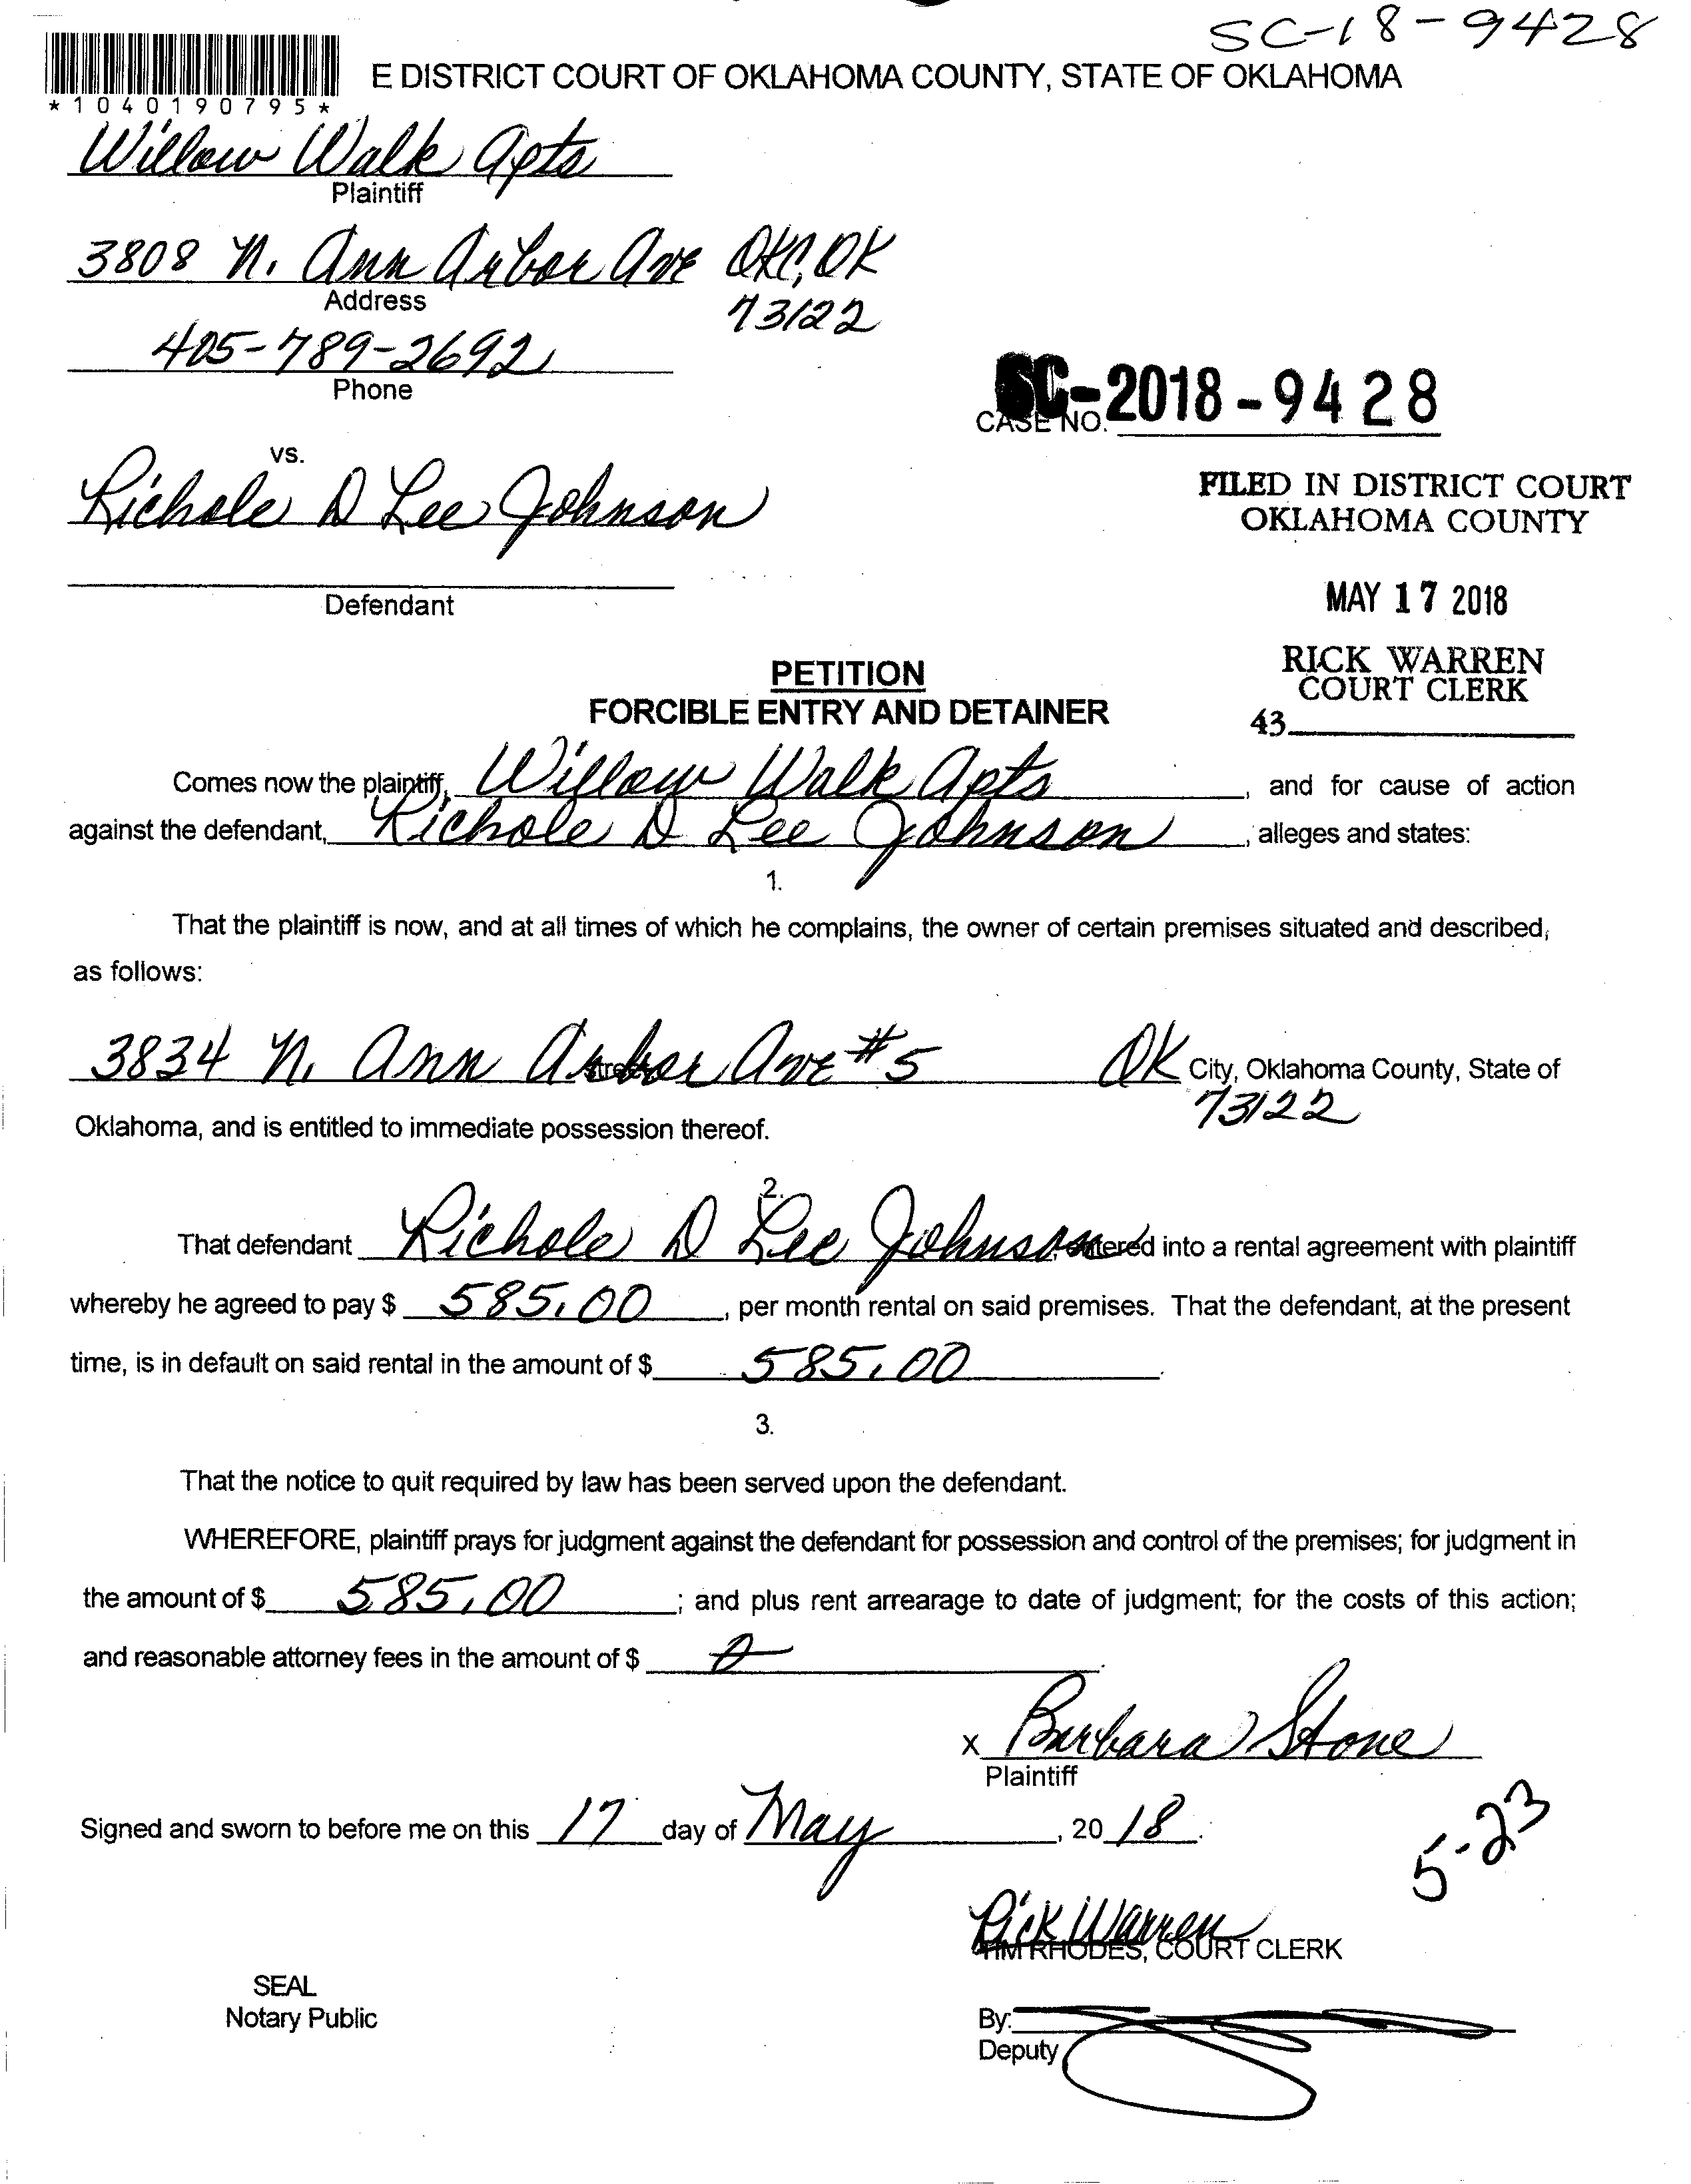 SC-18-9428
E DISTRICT COURT OF OKLAHOMA COUNTY, STATE OF OKLAHOMA
*1040190795*
Willow Walk Apts
Plaintiff
3808 N. Ann Arbor Ave OKC, OK
Address
73122
405-789-2692
Phone
SC-2018-9428
CASE NO.
vs.
Richole D Lee Johnson
FILED IN DISTRICT COURT
OKLAHOMA COUNTY
Defendant
MAY 17 2018
PETITION
FORCIBLE ENTRY AND DETAINER
RICK WARREN
COURT CLERK
43
Comes now the plaintiff, Willow Walk Apts, and for cause of action
against the defendant, Richole D Lee Johnson, alleges and states:
1.
That the plaintiff is now, and at all times of which he complains, the owner of certain premises situated and described,
as follows:
3834 N. Ann Arbor Ave #5 OK City, Oklahoma County, State of
Street
73122
Oklahoma, and is entitled to immediate possession thereof.
2.
That defendant Richole D Lee Johnson, entered into a rental agreement with plaintiff
whereby he agreed to pay $ 585.00, per month rental on said premises. That the defendant, at the present
time, is in default on said rental in the amount of $ 585.00.
3.
That the notice to quit required by law has been served upon the defendant.
WHEREFORE, plaintiff prays for judgment against the defendant for possession and control of the premises; for judgment in
the amount of $ 585.00; and plus rent arrearage to date of judgment; for the costs of this action;
and reasonable attorney fees in the amount of $ 0.
x Barbara Stone
Plaintiff
Signed and sworn to before me on this 17 day of May, 2018.
5-23
Rick Warren
TIM RHODES, COURT CLERK
SEAL
Notary Public
By:
Deputy